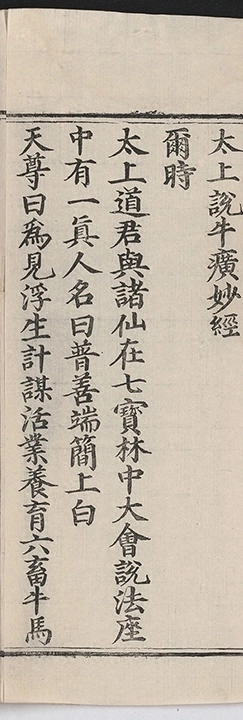 太上說牛癀妙經
爾時
太上道君與諸仙在七寶林中大會說法座
中有一眞人名曰普善端簡上白
天尊曰為見浮生計謀活業養育六畜牛馬